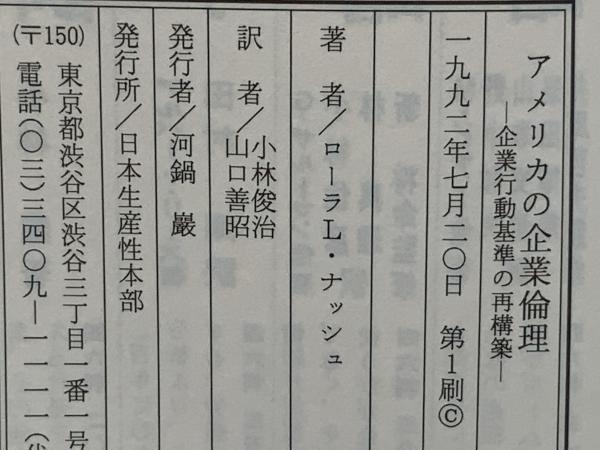 アメリカの企業倫理
―企業行動基準の再構築―
一九九二年七月二〇日 第1刷©
著 者/ローラL・ナッシュ
訳 者/小林俊治
山口善昭
発行者/河鍋 巖
発行所/日本生産性本部
(〒150) 東京都渋谷区渋谷三丁目一番一号
電話(〇三)三四〇九―一一一一(代